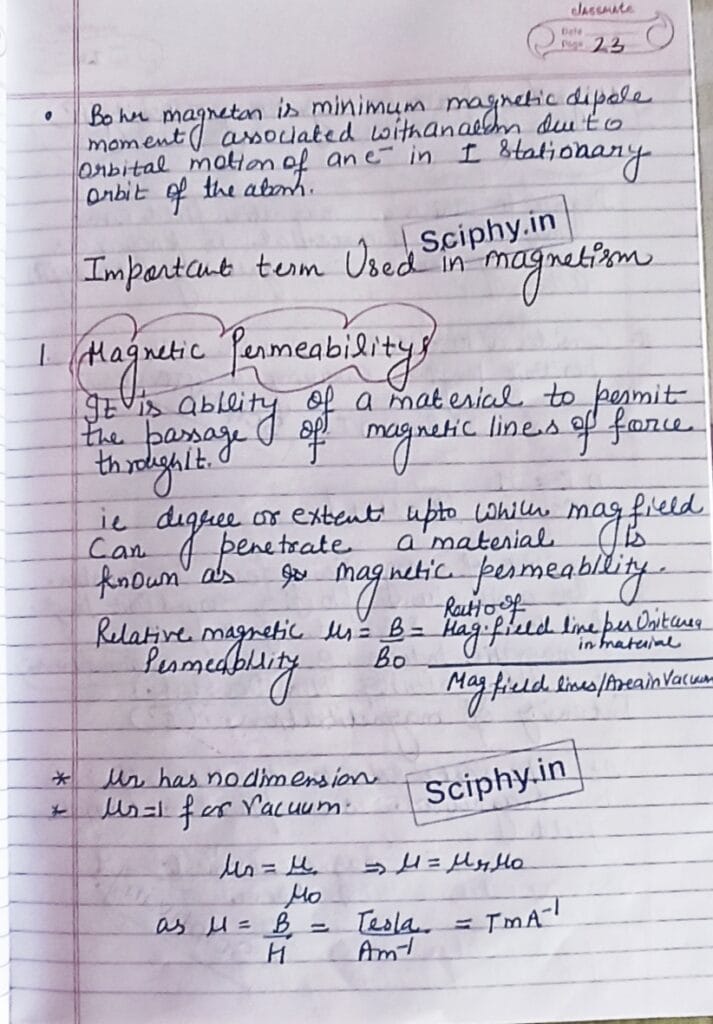 classmate
Date
Page 23
• Bohr magneton is minimum magnetic dipole
moment associated with an atom due to
orbital motion of an e⁻ in I stationary
orbit of the atom.
Sciphy.in
Important term Used in magnetism
1. Magnetic Permeability:
It is ability of a material to permit
the passage of magnetic lines of force
through it.
ie degree or extent upto which mag field
Can penetrate a material is
known as magnetic permeability.
Relative magnetic μr = B = Ratio of Mag. field line per Unit area in material
Permeability B0 Mag field lines/Area in Vacuum
* μr has no dimension
Sciphy.in
* μr=1 for Vacuum.
μr = μ ⇒ μ = μrμ0
μ0
as μ = B = Tesla = TmA⁻¹
H Am⁻¹